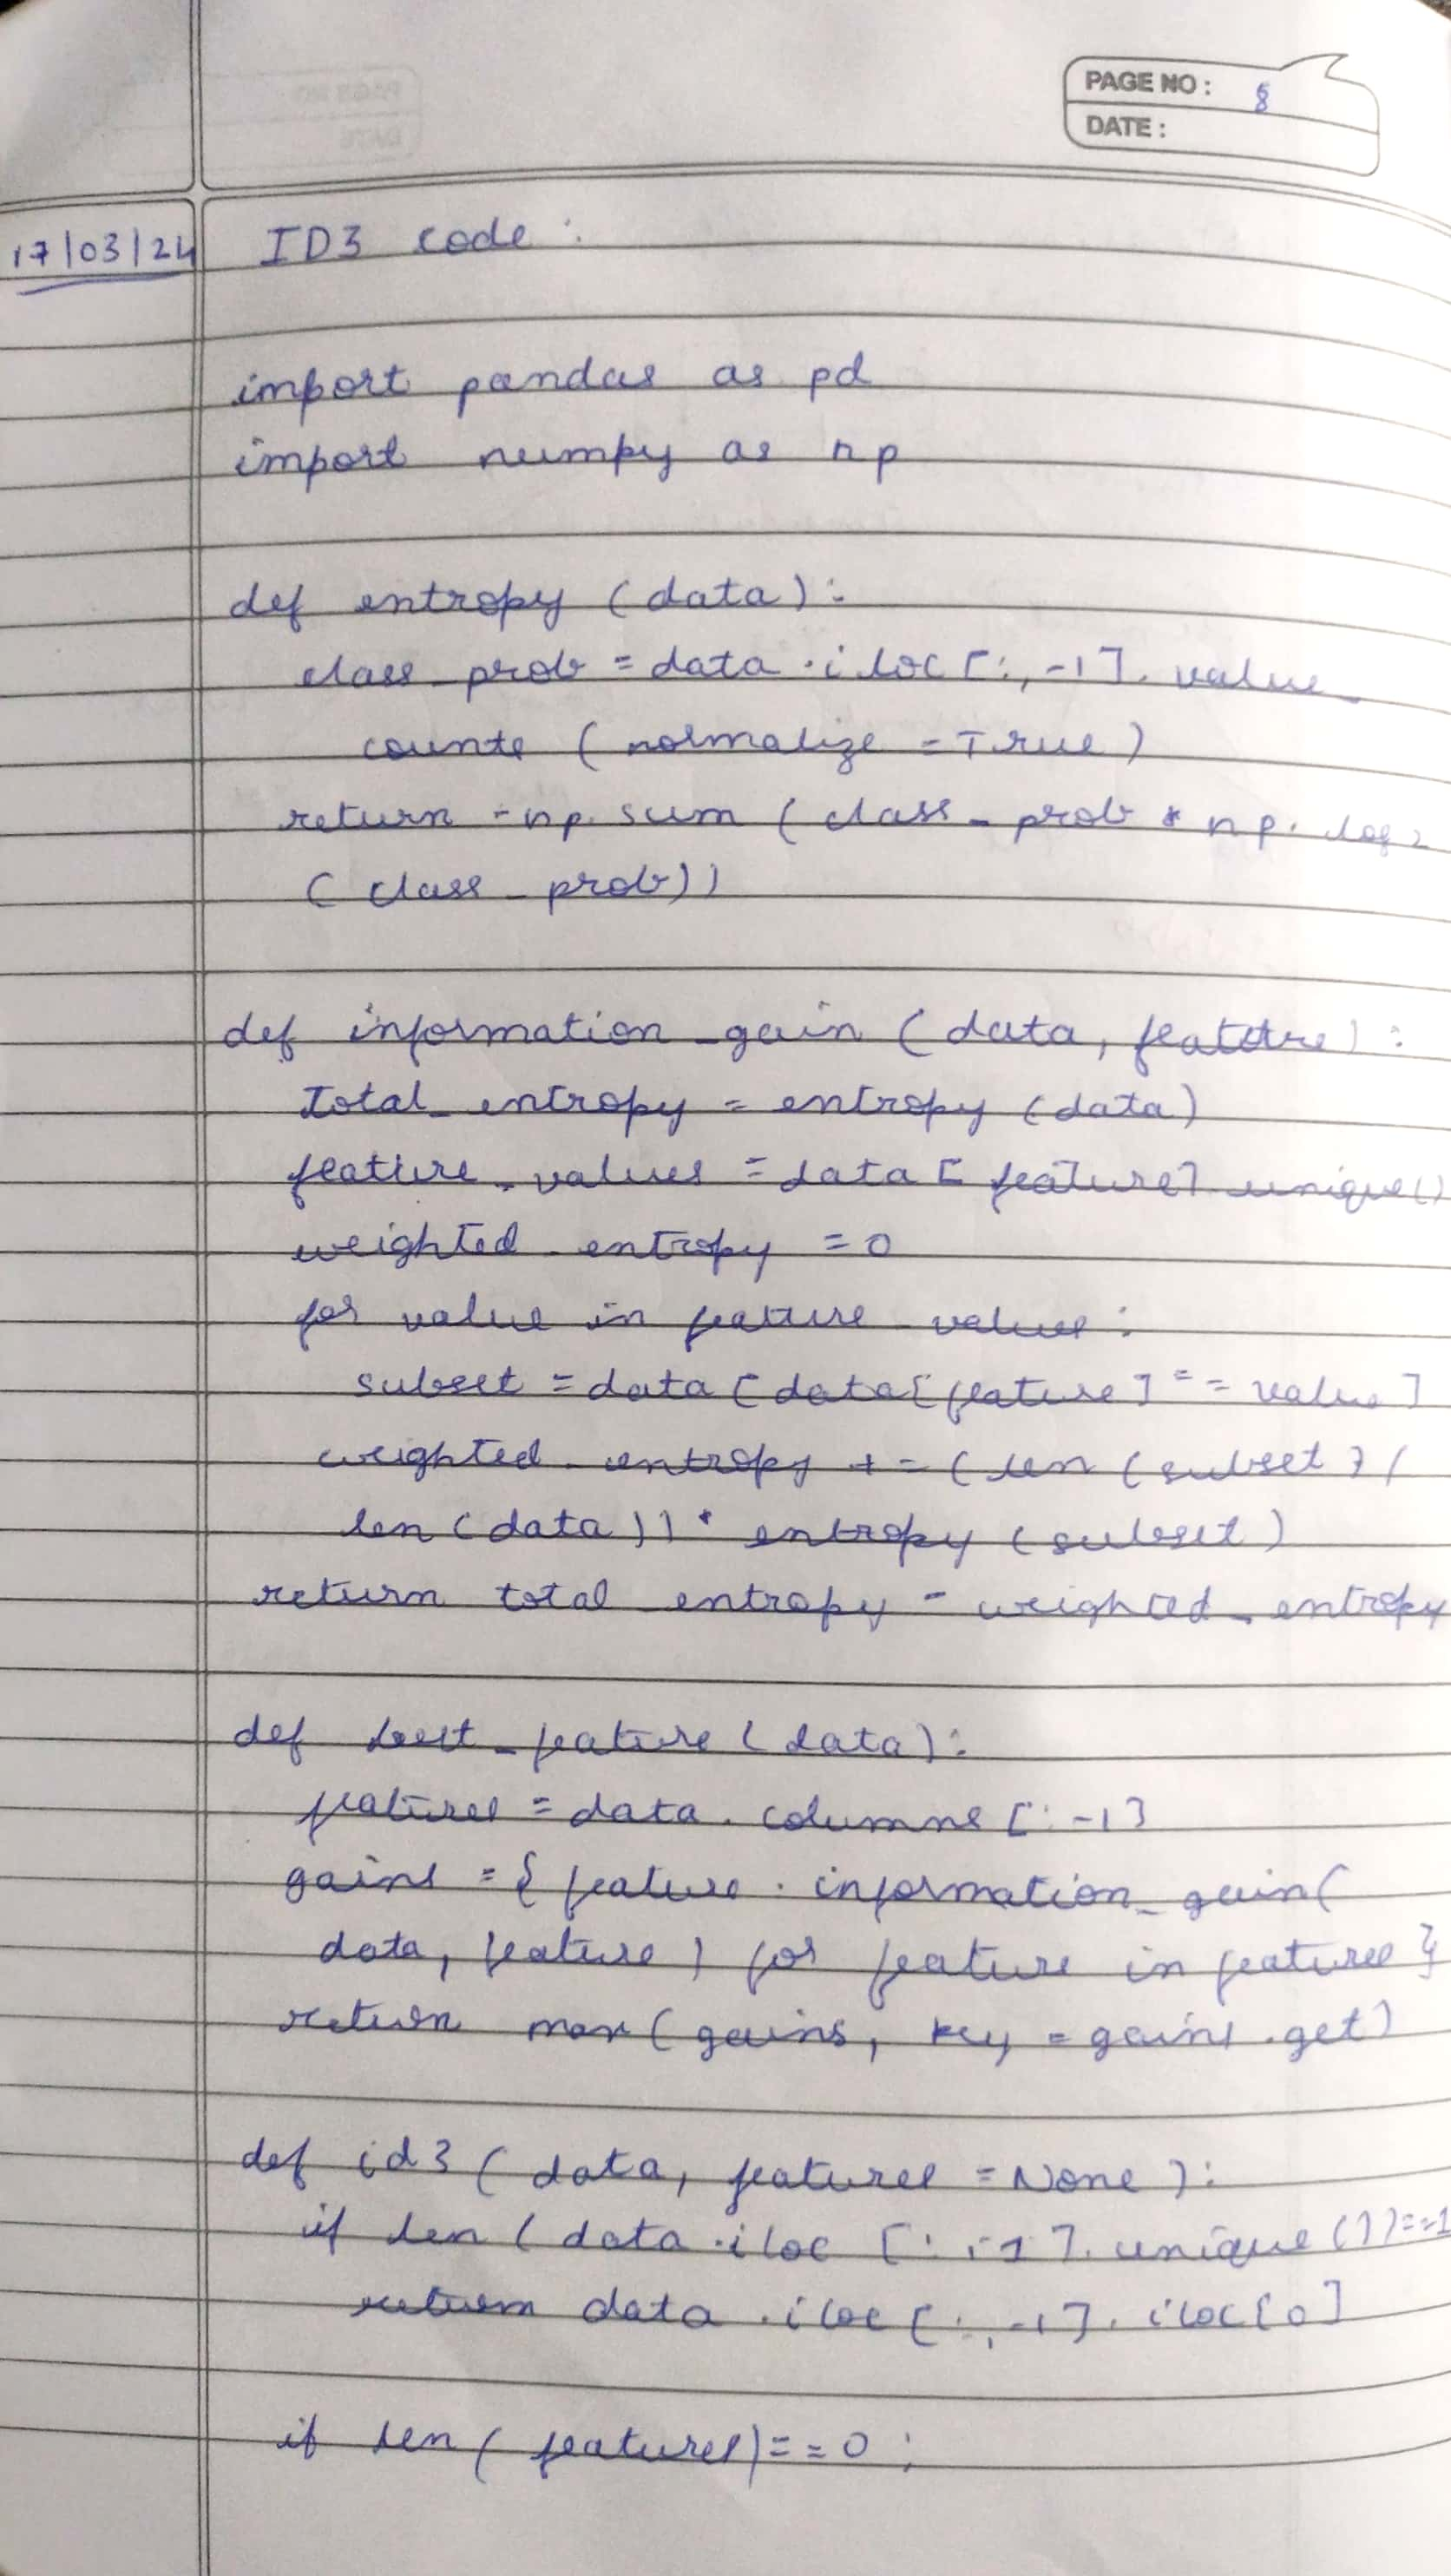 PAGE NO: 8
DATE:
17/03/24 ID3 code:
import pandas as pd
import numpy as np
def entropy (data):
class_prob = data.iloc[:,-1].value_
counts (normalize = True)
return -np.sum (class_prob * np.log2
(class_prob))
def information_gain (data, feature):
Total_entropy = entropy (data)
feature_values = data [feature] unique()
weighted_entropy = 0
for value in feature_values:
subset = data [data[feature] == value]
weighted_entropy += (len (subset) /
len (data)) * entropy (subset)
return total_entropy - weighted_entropy
def best_feature (data):
features = data.columns [:-1]
gains = { feature . information_gain(
data, feature) for feature in features }
return max (gains, key = gains.get)
def id3 (data, features = None):
if len (data.iloc [:,-1].unique())==1
return data.iloc[:,-1].iloc[0]
if len (features)==0;